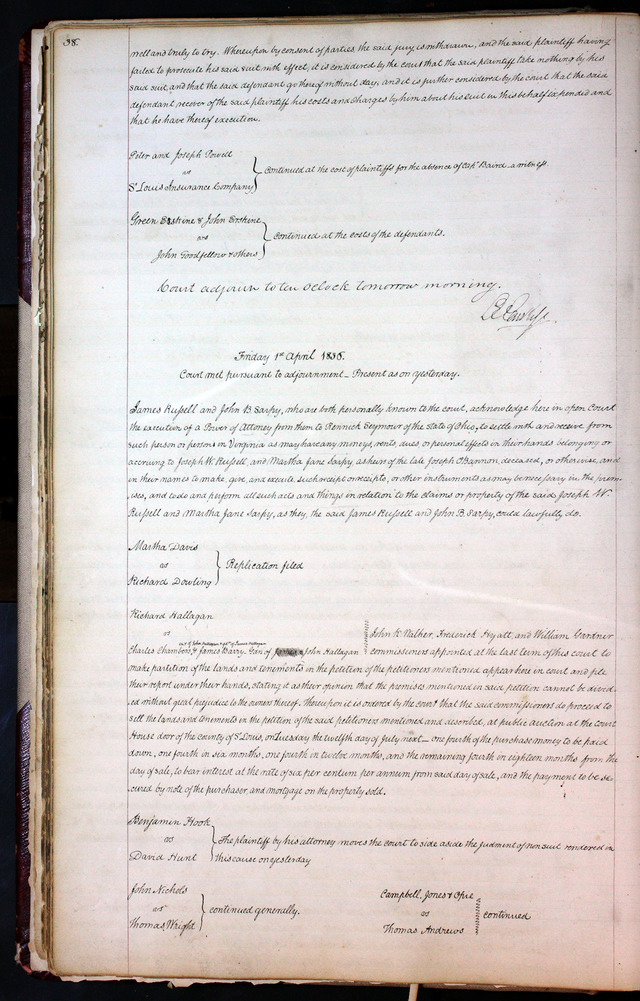 38.
well and truly to try. Whereupon by consent of parties the said jury is withdrawn, and the said plaintiff having
failed to prosecute his said suit with effect, it is considered by the court that the said plaintiff take nothing by his
said suit, and that the said defendant go thereof without day, and it is further considered by the court that the said
defendant recover of the said plaintiff his costs and charges by him about his suit in this behalf expended and
that he have thereof execution.
Peter and Joseph Powell
vs
St Louis Insurance Company
Continued at the cost of plaintiffs for the absence of Capt Baird a witness.
Green Erskine & John Erskine
vs
John Goodfellow & others
Continued at the costs of the defendants.
Court adjourn to ten Oclock tomorrow morning.
Friday 1st April 1836.
Court met pursuant to adjournment – Present as on yesterday.
James Russell and John B. Sarpy, who are both personally known to the court, acknowledge here in open Court
the execution of a Power of Attorney from them to Rennick Seymour of the State of Ohio, to settle with and receive from
such person or persons in Virginia as may have any moneys, rents, dues or personal effects in their hands belonging or
accruing to Joseph W. Russell, and Martha Jane Sarpy, as heirs of the late Joseph O'Bannon, deceased, or otherwise, and
in their names to make, give, and execute such receipt or receipts, or other instruments as may be necessary in the prem-
ises, and to do and perform all such acts and things in relation to the claims or property of the said Joseph W.
Russell and Martha Jane Sarpy, as they, the said James Russell and John B. Sarpy, could lawfully do.
Martha Davis
vs
Richard Dowling
Replication filed
Richard Hallagan
vs
Charles Chambers, & James Barry, Exr of John Hallagan
John K. Walker, Frederick Hyatt, and William Gardner
commissioners appointed at the last term of this court to
make partition of the lands and tenements in the petition of the petitioners mentioned appear here in court and file
their report under their hands, stating it as their opinion that the premises mentioned in said petition cannot be divid-
ed without great prejudice to the owners thereof. Thereupon it is ordered by the court that the said commissioners do proceed to
sell the lands and tenements in the petition of the said petitioners mentioned and described, at public auction at the court
House door of the county of St Louis, on Tuesday the twelfth day of July next – one fourth of the purchase money to be paid
down, one fourth in six months, one fourth in twelve months, and the remaining fourth in eighteen months from the
day of sale, to bear interest at the rate of six per centum per annum from said day of sale, and the payment to be se-
cured by note of the purchaser and mortgage on the property sold.
Benjamin Hook
vs
David Hunt
The plaintiff by his attorney moves the court to side aside the judgment of nonsuit rendered in
this cause on yesterday
John Nichols
vs
Thomas Wright
continued generally.
Campbell, Jones & Opie
vs
Thomas Andrews
continued